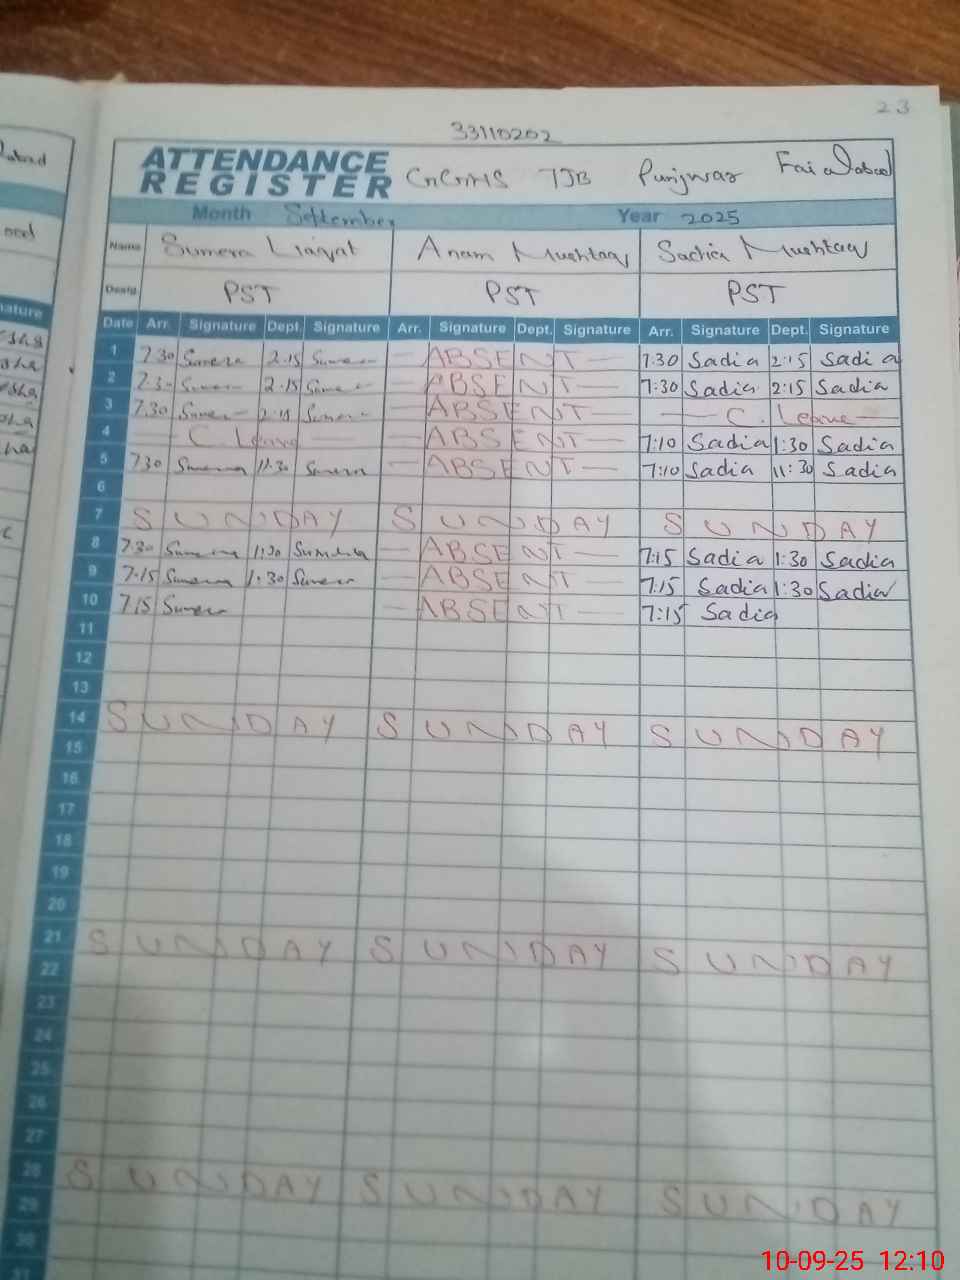 23
33110202
ATTENDANCE REGISTER GGHS 7JB Punjwar Faisalabad
Month September Year 2025
Name Sumera Liaqat Anam Mushtaq Sadia Mushtaq
Desig. PST PST PST
Date Arr. Signature Dept. Signature Arr. Signature Dept. Signature Arr. Signature Dept. Signature
1 7.30 Sumera 2.15 Sumera — ABSENT — 7:30 Sadia 2:15 Sadia
2 7.30 Sumera 2.15 Sumera — ABSENT — 7:30 Sadia 2:15 Sadia
3 7.30 Sumera 2.15 Sumera — ABSENT — — C. Leave —
4 — C. Leave — — ABSENT — 7:10 Sadia 1:30 Sadia
5 730 Sumera 11:30 Sumera — ABSENT — 7:10 Sadia 11:30 Sadia
6
7 SUNDAY SUNDAY SUNDAY
8 7.30 Sumera 1:30 Sumera — ABSENT — 7:15 Sadia 1:30 Sadia
9 7.15 Sumera 1.30 Sumera — ABSENT — 7:15 Sadia 1:30 Sadia
10 7.15 Sumera — ABSENT — 7:15 Sadia
11
12
13
14 SUNDAY SUNDAY SUNDAY
15
16
17
18
19
20
21 SUNDAY SUNDAY SUNDAY
22
23
24
25
26
27
28 SUNDAY SUNDAY SUNDAY
29
30
31
10-09-25 12:10